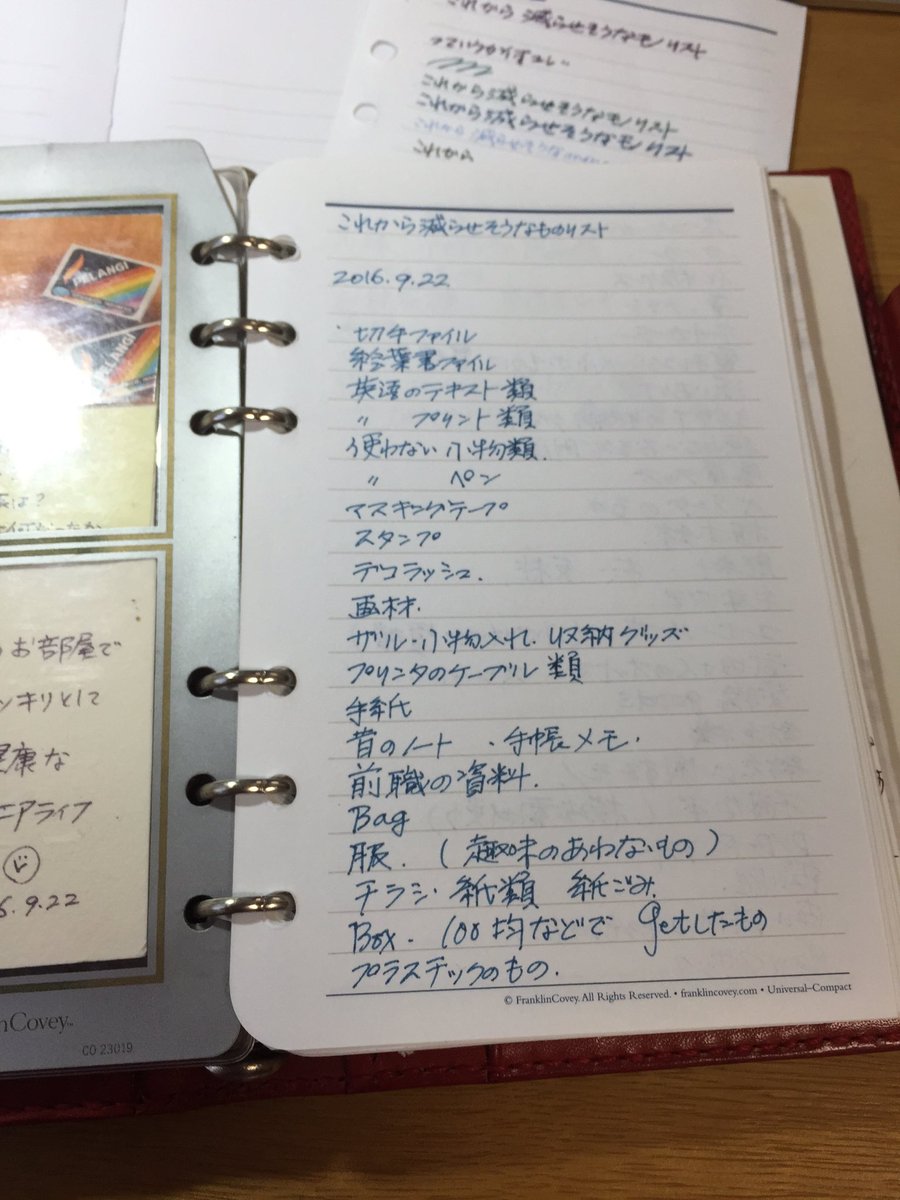 これから減らせそうなモノリスト
これから減らせそうなモノリスト
これから減らせそうなモノリスト
これから減らせそうな
これから
PELANGI
PELANGI
は?
お部屋で
ンキリとして
健康な
ニアライフ
6.9.22
nCovey™
CO 23019
これから減らせそうなものリスト
2016.9.22
・切手ファイル
絵葉書ファイル
英語のテキスト類
〃 プリント類
使わない小物類.
〃 ペン
マスキングテープ
スタンプ
デコラッシュ.
画材.
ザル・小物入れ. 収納グッズ
プリンタのケーブル類
手紙
昔のノート ・手帳メモ.
前職の資料.
Bag
服. (趣味のあわないもの)
チラシ・紙類 紙ごみ.
Box. 100均などで getしたもの
プラスチックのもの.
© FranklinCovey. All Rights Reserved. • franklincovey.com • Universal–Compact